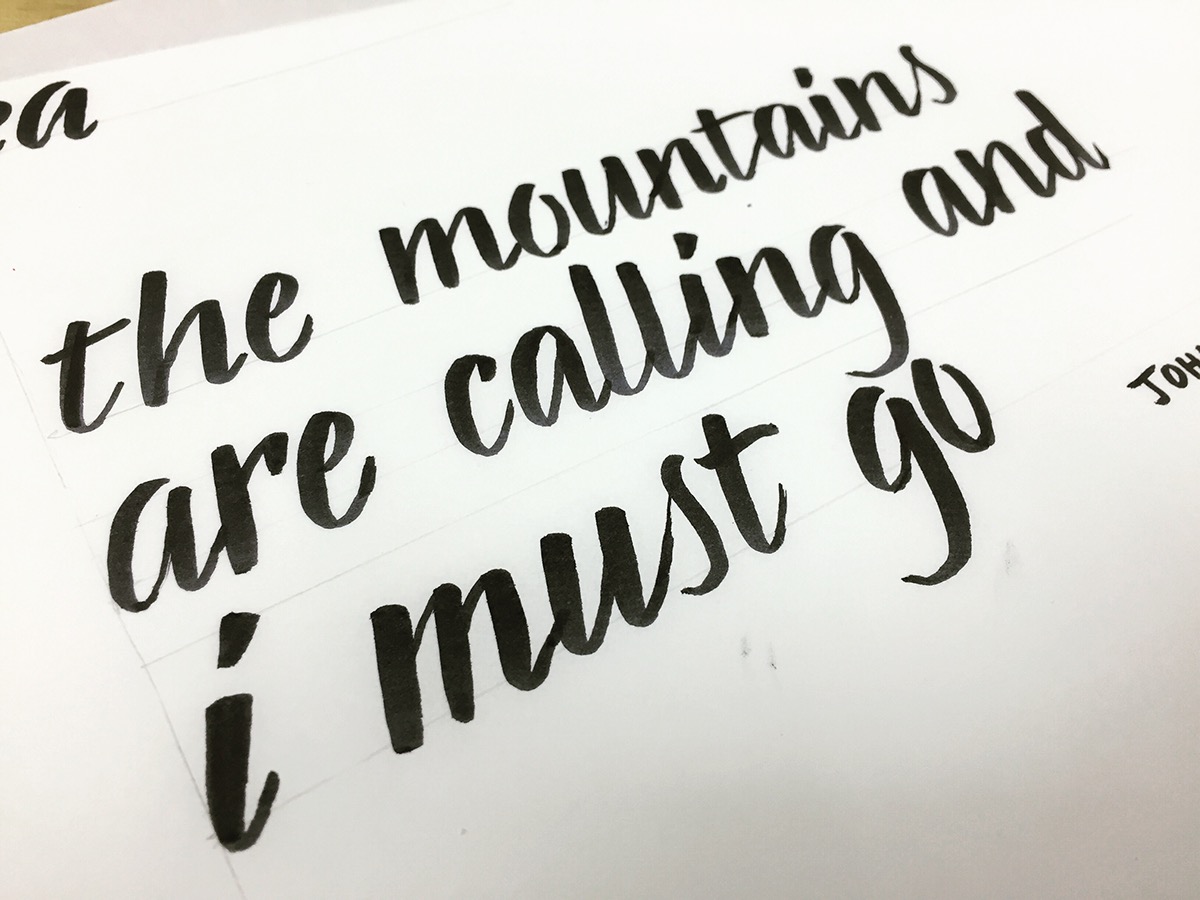 the mountains
are calling and
i must go